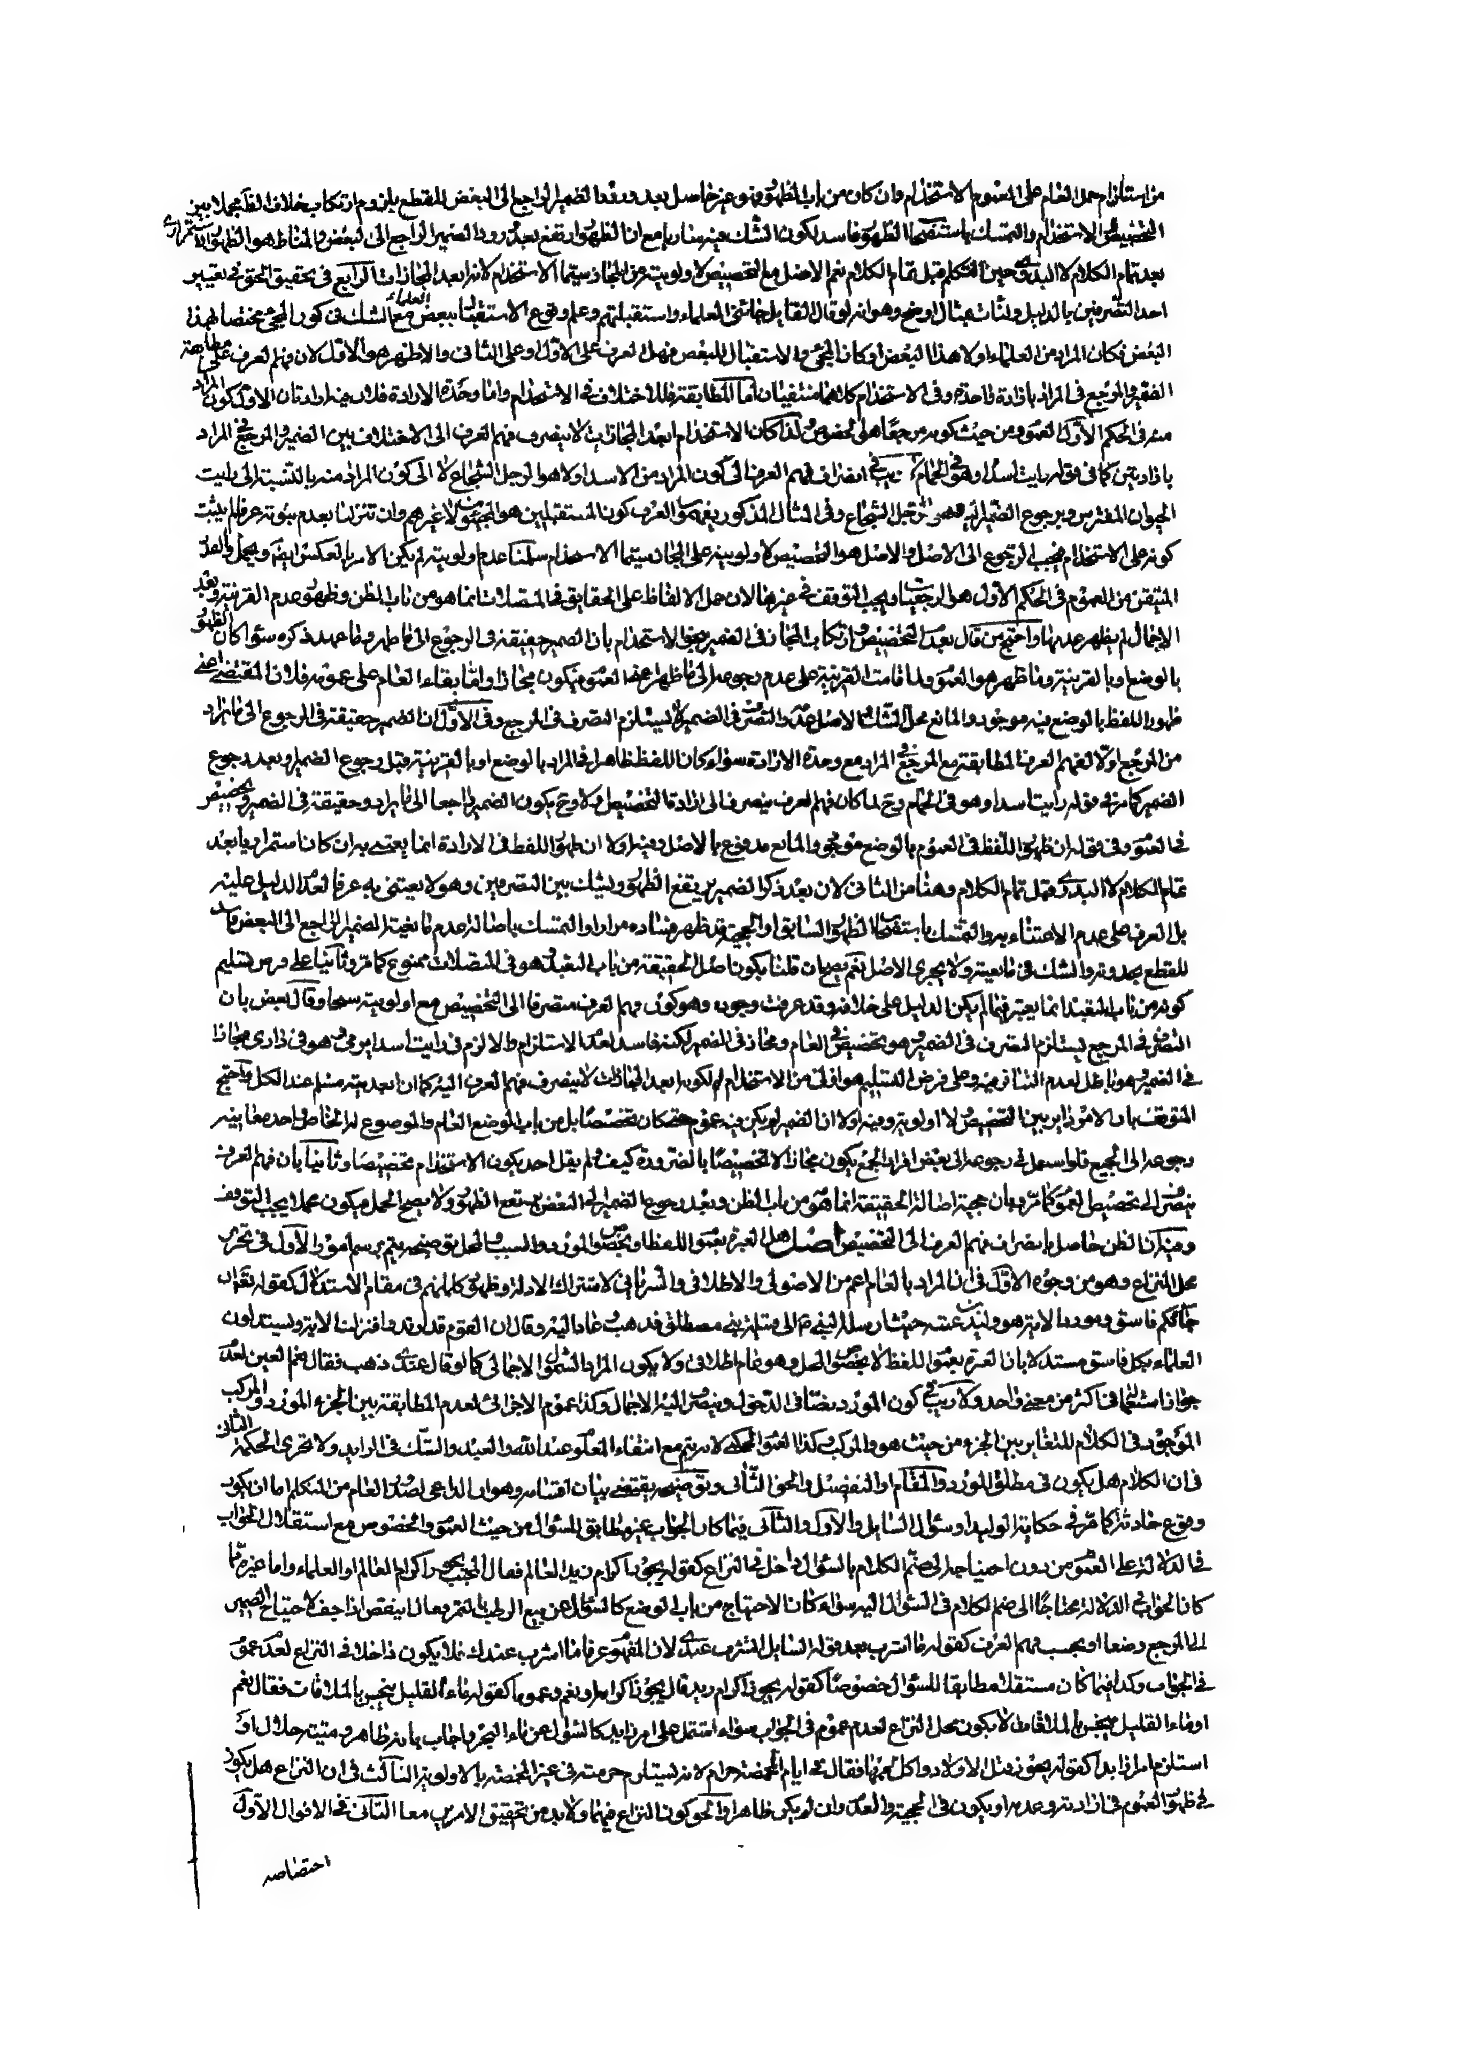 من استلزام حمل العام على العموم الاستخدام وان كان من باب الظهور فهو غير حاصل بعد ورود الضمير الراجع الى البعض للقطع بلزوم ارتكاب خلاف الظ مجملا بين
التخصيص والاستخدام والتمسك باستصحاب الظهور فاسد لكون الشك فيه ساريا مع ان الظهور ارتفع بعد ورود الضمير الراجع الى البعض والمناط هو الظهور الاستمراري
بعد تمام الكلام لا البدوي حين التكلم قبل تمام الكلام نعم الاصل مع التخصيص لاولويته من المجاز سيما الاستخدام لانه ابعد المجازات الرابع في تحقيق الحق في تعيير
احد التصرفين بالدليل ولنات بمثال اوضح وهو انه لو قال القايل جائني العلماء واستقبلتهم وعلم وقوع الاستقبال لبعض العلماء مع الشك في كون المجئ مختصا بهذا
البعض فكان المراد من العلماء اولا هذا البعض او كان المجئ والاستقبال للبعض فهل العرف على الاول او على الثاني والاظهر هو الاول لان فهم العرف على مطابقة
الضمير والمرجع في المراد بارادة واحدة وفي الاستخدام كلاهما منتفيان اما المطابقة فللاختلاف في الاستخدام واما وحدة الارادة فلان فيه ارادتان الاول كون المراد
منه في الحكم الاول العموم ومن حيث كونه مرجعا هو الخصوص ولذا كان الاستخدام ابعد المجازات لا ينصرف فهم العرف الى الاختلاف بين الضمير والمرجع في المراد
بارادتين كما في قوله رايت اسدا وهو في الحمام انصراف فهم العرف الى كون المراد من الاسد اولا هو الرجل الشجاع لا الى كون المراد منه بالنسبة الى رايت
الحيوان المفترس وبرجوع الضمير اليه هو الرجل الشجاع وفي المثال المذكور يفهم العرف كون المستقبلين هو الجميع لا غيرهم وان تنزلنا بعدم ثبوته عرفا لم يثبت
كونه على الاستخدام فيجب الرجوع الى الاصل والاصل هو التخصيص لاولويته على المجاز سيما الاستخدام سلمنا عدم اولويته لم يكن الامر بالعكس ايضا ويحمل والقدر
المتيقن من العموم في الحكم الاول هو الرجعيات ويجب التوقف في غيرها لان حمل الالفاظ على الحقايق في المتصلات انما هو من باب الظن وظهور عدم القرينة وبعد
الاجمال لم يظهر عدمها واحتج من قال بعدم التخصيص وارتكاب المجاز في الضمير بنحو الاستخدام بان الضمير حقيقة في الرجوع الى ما ظهر وما عهد ذكره سواء كان الظهور
بالوضع او بالقرينة وما ظهر هو العموم ولما قامت القرينة على عدم رجوعه الى ما ظهر اعني العموم فيكون مجازا واما بقاء العام على عمومه فلان المقتضي اعني
ظهور اللفظ بالوضع فيه موجود والمانع محل الشك والاصل عدمه والتصرف في الضمير لا يستلزم التصرف في المرجع وفي الاول ان الضمير حقيقة في الرجوع الى ما يراد
من المرجع اولا لفهم العرف المطابقة مع المرجع في المراد مع وحدة الارادة سواء كان اللفظ ظاهرا في المراد بالوضع او بالقرينة قبل رجوع الضمير او بعد رجوع
الضمير كما مر في قوله رايت اسدا وهو في الحمام وح لما كان فهم العرف منصرفا الى ارادة التخصيص اولا وح يكون الضمير راجعا الى ما يراد وحقيقة في الضمير وتخصيص
في العموم وفي قوله ان ظهور اللفظ في العموم بالوضع موجود والمانع مدفوع بالاصل وفيه اولا ان ظهور اللفظ في الارادة انما يعتبر به ان كان استمراريا بعد
تمام الكلام لا البدوي قبل تمام الكلام وهنا من الثاني لان بعد ذكر الضمير يرتفع الظهور ويشك بين التصرفين وهو لا يعتنى به عرفا لعدم الدليل عليه
بل العرف على عدم الاعتناء به والتمسك باستصحاب الظهور السابق او الحجية قد ظهر فساده مرارا والتمسك باصالة عدم مانعية الضمير الراجع الى البعض فاسد
للقطع بحدوثه والشك في مانعيته ولا يجري الاصل نعم يصح ان قلنا بكون اصل الحقيقة من باب التعبد وهو في المتصلات ممنوع كما مر وثانيا على فرض تسليم
كونه من باب التعبد انما يعتبر فيما لم يكن الدليل على خلافه وقد عرفت وجوده وهو كون فهم العرف منصرفا الى التخصيص مع اولويته سيما وقال بعض بان
التصرف في المرجع يستلزم التصرف في الضمير وهو تخصيص في العام ومجاز في الضمير لكنه فاسد لعدم الاستلزام والا لزم في رايت اسدا يرمي وهو في داري مجازا
في الضمير وهو باطل لعدم التنافر فيه وعلى فرض التسليم هو اولى من الاستخدام لكونه ابعد المجازات لا ينصرف فهم العرف اليه كما ان ابعديته مسلم عند الكل واحتج
المتوقف بان الامر داير بين التخصيص لا اولوية وفيه اولا ان الضمير لم يكن فيه عموم حتى كان تخصيصا بل من باب الوضع العام والموضوع له الخاص احد معانيه
رجوعه الى الجميع فلو استعمل في رجوعه الى بعض افراد الجمع يكون مجازا لا تخصيصا بالضرورة كيف ولم يقل احد بكون الاستخدام تخصيصا وثانيا بان فهم العرف
ينصرف الى تخصيص العموم كما مر وبان حجية اصالة الحقيقة انما هو من باب الظن وبعد رجوع الضمير الى البعض يرتفع الظهور ولا يصح الحمل فيكون مجملا يجب التوقف
وفيه ان الظن حاصل بانصراف فهم العرف الى التخصيص اصل هل العبرة بعموم اللفظ او بخصوص المورد والسبب والمحل توضيحه يتم برسم امور الاول في تحرير
محل النزاع وهو من وجوه الاول في ان المراد بالعام اعم من الاصولي والاطلاقي والسرياني لاشتراك الادلة وظهور كلماتهم في مقام الاستدلال كقوله تعالى ان
جائكم فاسق ومورد الاية هو وليد بن عتبة حيث ارسله النبي ص الى قبيلة بني مصطلق فذهب وعاد اليه وقال ان القوم قد ارتدوا فنزلت الاية ويستدلون
العلماء بكل فاسق مستدلا بان العبرة بعموم اللفظ لا بخصوص المحل وهو عام اطلاقي ولا يكون المراد الشمول الاجمالي كما لو قال عندي ذهب فقال نعم العين لعدم
جواز استعماله في اكثر من معنى واحد ولا ريب في كون المورد نصا في الدخول وينصرف اليه الاجمال وكذا عموم الاجزائي لعدم المطابقة بين الجزء المورد والمركب
الموجود في الكلام للتغاير بين الجزء من حيث هو والمركب وكذا العموم الحكمي لانه يتم مع انتفاء المعلوم عند الله والعبد والشك في الزايد ولا تجري الحكمة الثاني
في ان الكلام هل يكون في مطلق المورد والمقام او التفصيل والحق الثاني وتوضيحه يقتضي بيان اقسامه وهو ان الداعي لصدور العام من المتكلم اما ان يكون
وقوع حادثة كما مر في حكاية الوليد او سؤال السايل والاول والثاني فيما كان الجواب غير مطابق للسؤال من حيث العموم والخصوص مع استقلال الجواب
في الدلالة على العموم من دون احتياجه الى ضم الكلام بالسؤال داخل في النزاع كقوله يجوز اكرام زيد العالم فقال المجيب يجوز اكرام العالم او العلماء واما غيره مما
كان الجواب في الدلالة محتاجا الى ضم الكلام في السؤال اليه سواء كان الاحتياج من باب الوضع كالسؤال عن بيع الرطب بالتمر وقال اينقص اذا جف لاحتياج الضمير
الى المرجع وضعا او بحسب فهم العرف كقوله ما اشرب بعد قوله السايل اشرب عندي لان المفهوم عرفا ما اشرب عندك فلا يكون داخلا في النزاع لعدم عموم
في الجواب وكذا فيما كان مستقلا مطابقا للسؤال خصوصا كقوله يجوز اكرام زيد قال يجوز اكرامه او نعم وعموما كقوله ماء القليل ينجس بالملاقات فقال نعم
او ماء القليل ينجس بالملاقات لا يكون محل النزاع لعدم عموم في الجواب سواء اشتمل على امر زايد كالسؤال عن ماء البحر واجاب بانه طاهر وميتته حلال او
استلزم امر زايدا كقوله يجوز قتل الاولاد واكل لحمها فقال في ايام المخمصة حرام لانه يستلزم حرمته في غير المخمصة بالاولوية الثالث في ان النزاع هل يكون
في ظهور العموم في ارادته وعدمه او يكون في الحجية والعدم وان لم يكن ظاهرا والحق كون النزاع فيهما ولابد من تحقيق الامرين معا الثاني في الاقوال الاول
اختصاصه